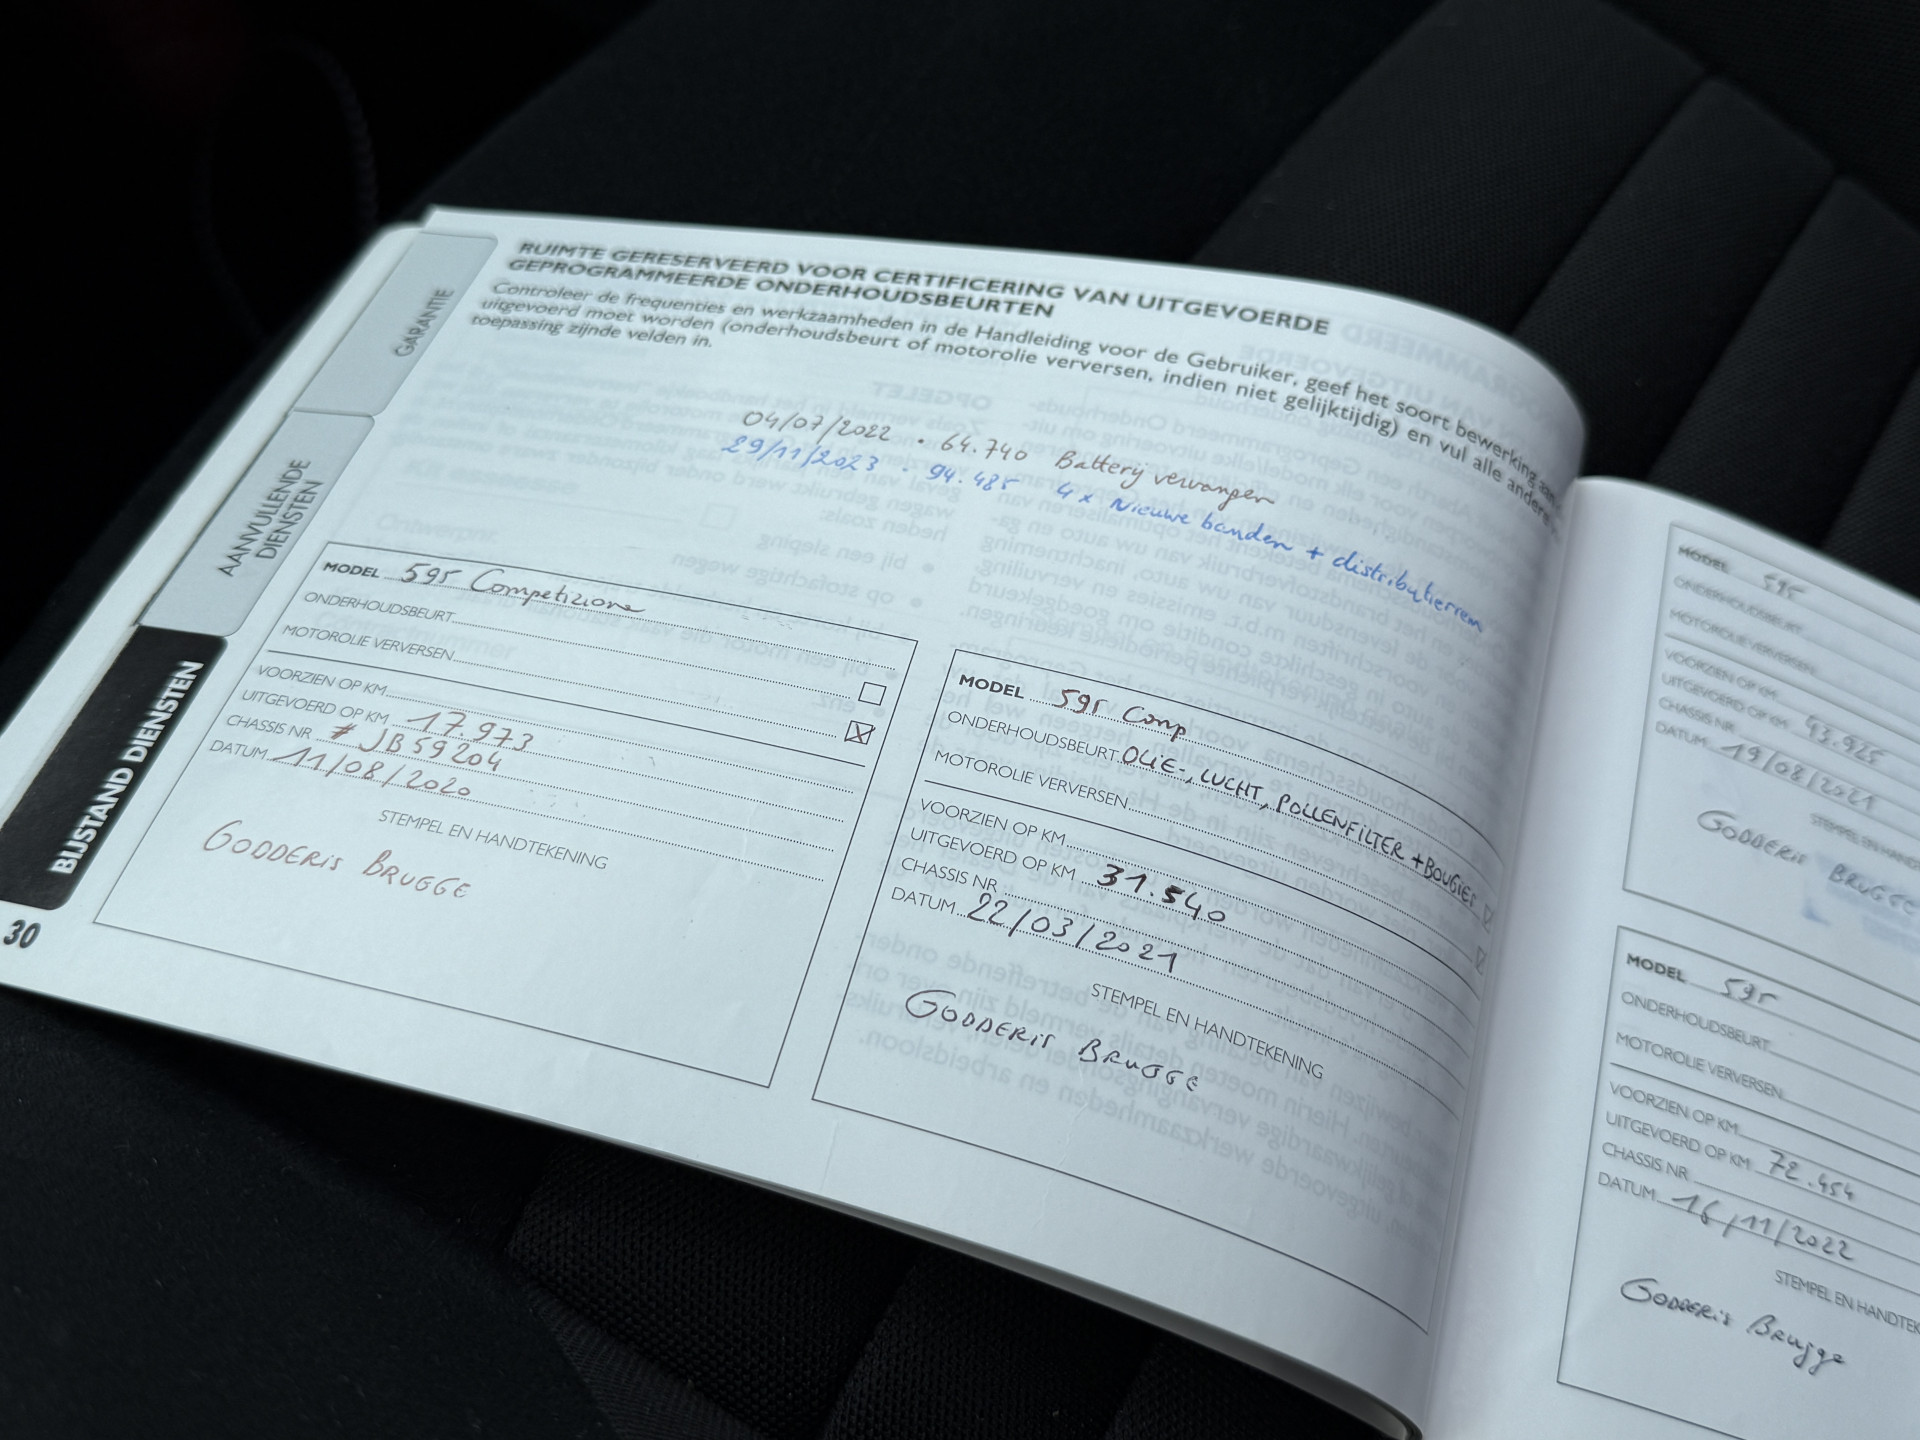 RUIMTE GERESERVEERD VOOR CERTIFICERING VAN UITGEVOERDE
GEPROGRAMMEERDE ONDERHOUDSBEURTEN
Controleer de frequenties en werkzaamheden in de Handleiding voor de Gebruiker, geef het soort bewerking
uitgevoerd moet worden (onderhoudsbeurt of motorolie verversen, indien niet gelijktijdig) en vul alle andere
toepassing zijnde velden in.
04/07/2022 . 64.740 Battery vervangen
29/11/2023 . 94.485 4 x Nieuwe banden + distributieriem
GARANTIE
AANVULLENDE
DIENSTEN
BIJSTAND DIENSTEN
30
MODEL 595 Competizione
ONDERHOUDSBEURT
MOTOROLIE VERVERSEN
VOORZIEN OP KM
UITGEVOERD OP KM 17.973
CHASSIS NR # JB59204
DATUM 11/08/2020
STEMPEL EN HANDTEKENING
GODDERIS BRUGGE
MODEL 595 Comp
ONDERHOUDSBEURT OLIE-, LUCHT, POLLENFILTER + BOUGIES
MOTOROLIE VERVERSEN
VOORZIEN OP KM
UITGEVOERD OP KM 31.540
CHASSIS NR
DATUM 22/03/2021
STEMPEL EN HANDTEKENING
GODDERIS BRUGGE
MODEL 595
ONDERHOUDSBEURT
MOTOROLIE VERVERSEN
VOORZIEN OP KM
UITGEVOERD OP KM 43.925
CHASSIS NR
DATUM 19/08/2021
STEMPEL EN
GODDERIS BRUGGE
MODEL 595
ONDERHOUDSBEURT
MOTOROLIE VERVERSEN
VOORZIEN OP KM
UITGEVOERD OP KM 72.454
CHASSIS NR
DATUM 16/11/2022
STEMPEL EN
GODDERIS Brugge